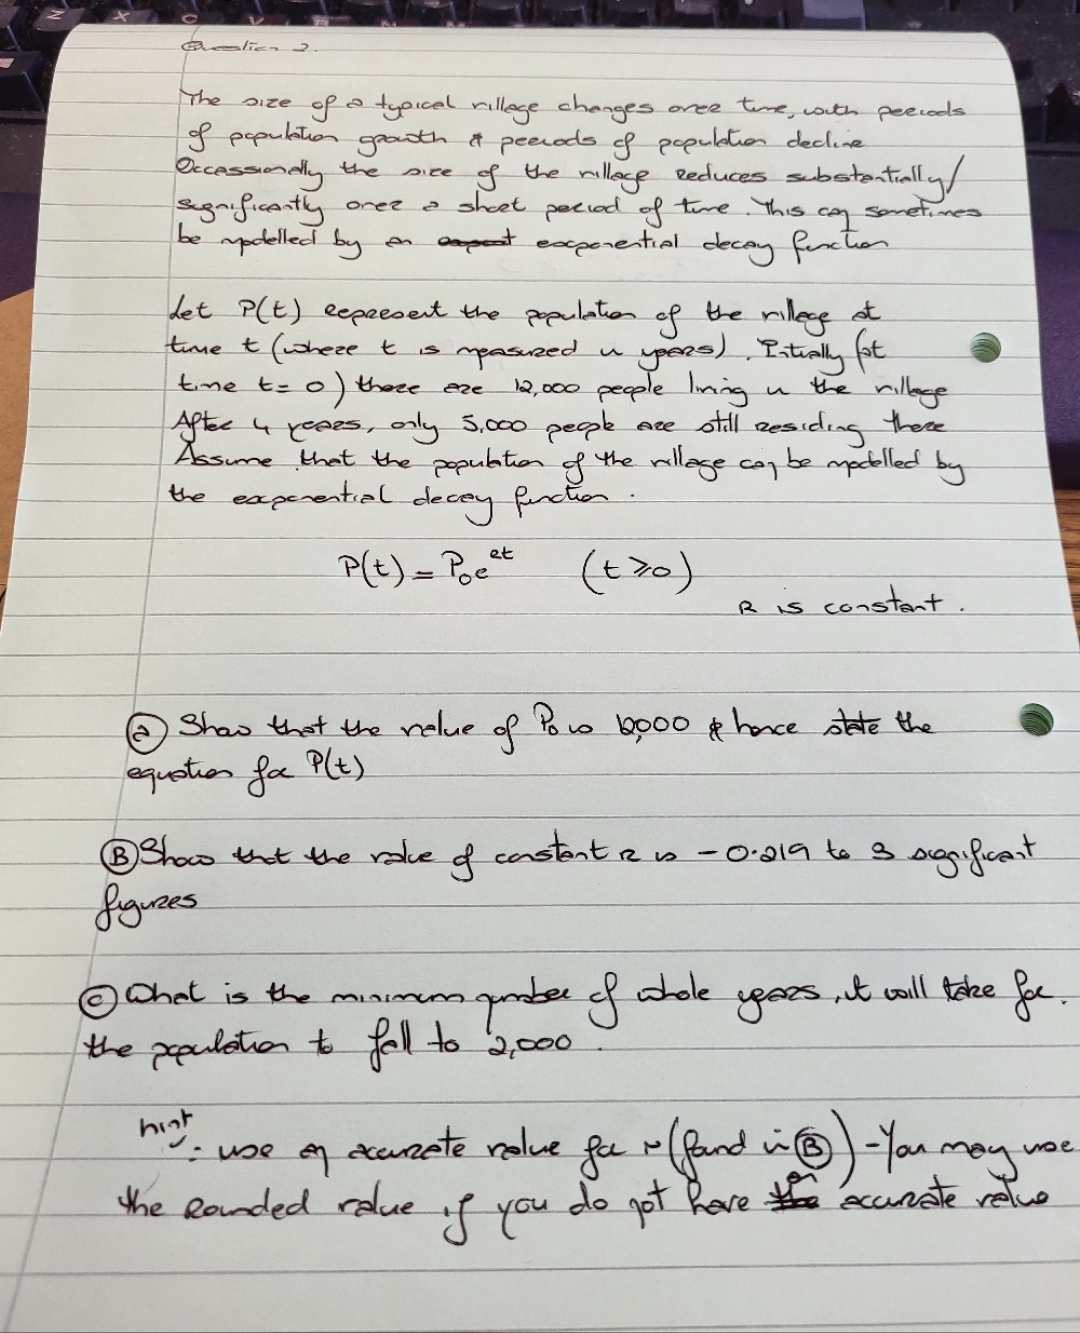 Z X C V B N
Question 2.
The size of a typical village changes over time, with periods
of population growth & periods of population decline
Occassionally the size of the village reduces substantially/
significantly over a short period of time. This can sometimes
be modelled by an exponential decay function
Let P(t) represent the population of the village at
time t (where t is measured in years). Initially (at
time t = 0) there are 12,000 people living in the village
After 4 years, only 5,000 people are still residing there
Assume that the population of the village can be modelled by
the exponential decay function.
P(t) = P₀e^rt (t ⩾ 0)
R is constant.
(a) Show that the value of P₀ is 12,000 & hence state the
equation for P(t)
(B) Show that the value of constant r is -0.219 to 3 significant
figures
(c) What is the minimum number of whole years, it will take for.
the population to fall to 2,000.
hint
: use an accurate value for r (found in (B)) - You may use
the rounded value if you do not have an accurate value